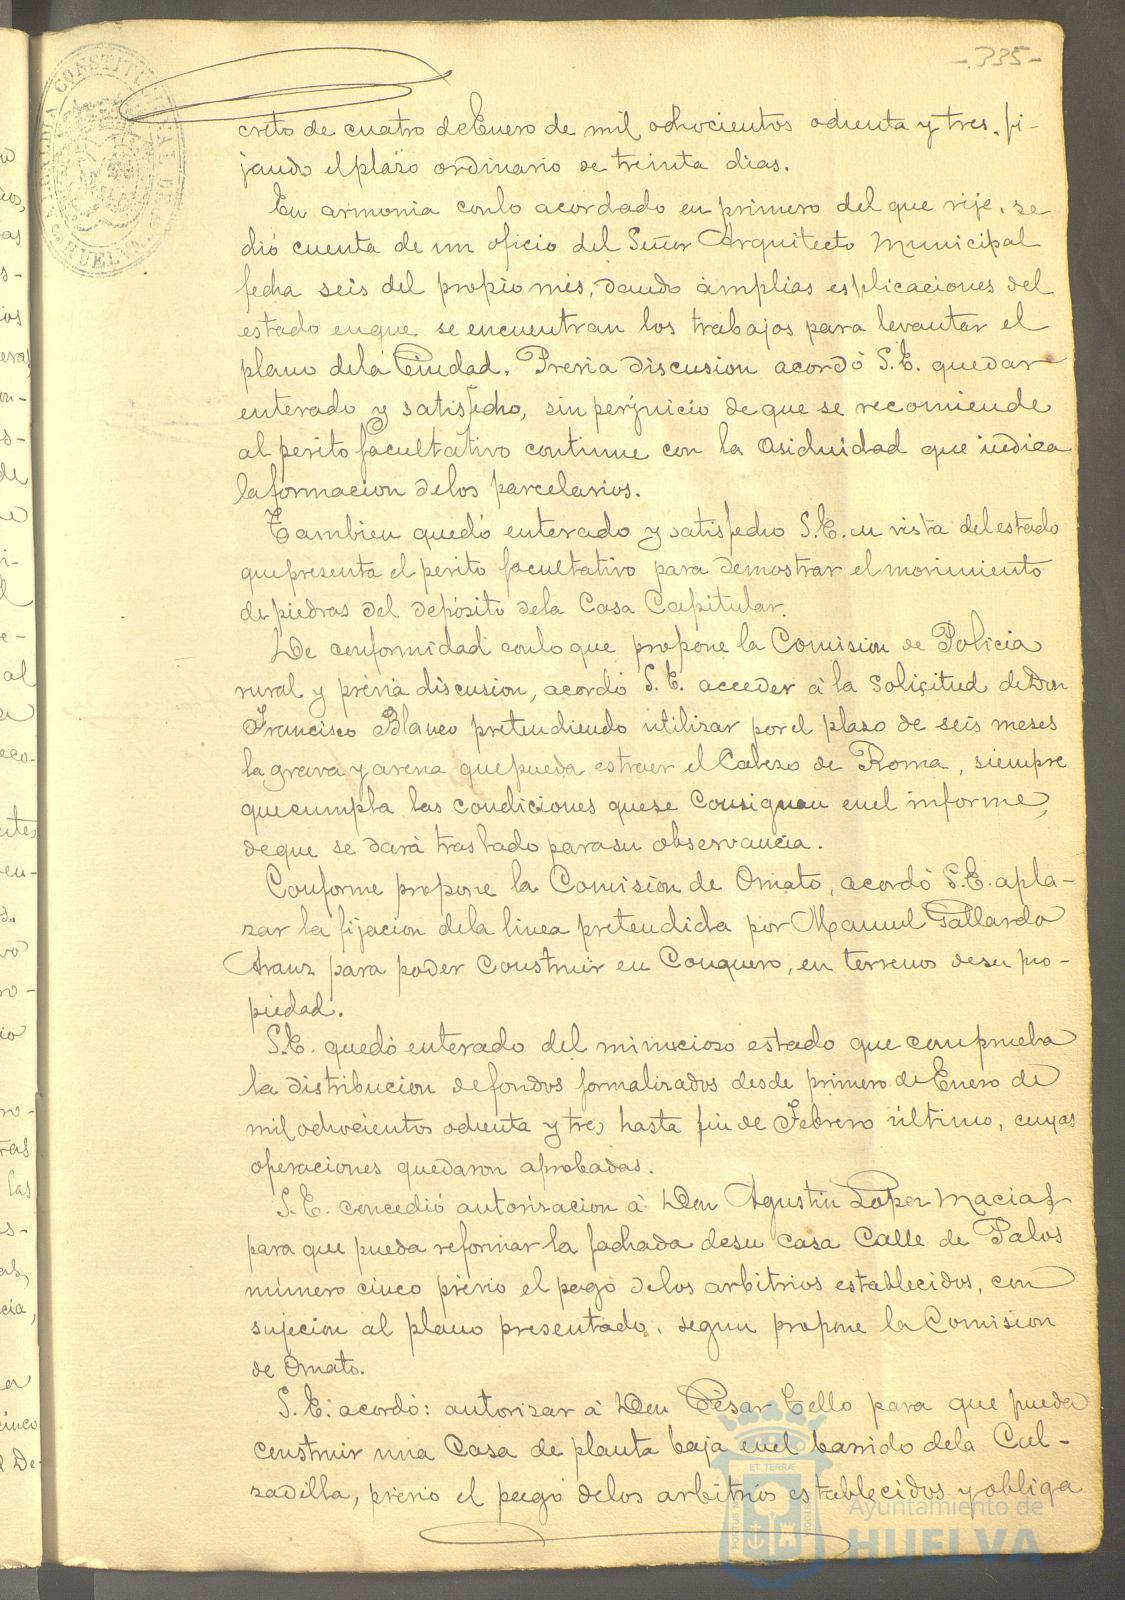 -335-
creto de cuatro de Enero de mil ochocientos ochenta y tres, fi-
jando el plazo ordinario de treinta dias.
En armonia con lo acordado en primero del que rije, se
dió cuenta de un oficio del Señor Arquitecto Municipal
fecha seis del propio mes, dando ámplias esplicaciones del
estado en que se encuentran los trabajos para levantar el
plano de la Ciudad. Prévia discusion acordó S.E. quedar
enterado y satisfecho, sin perjuicio de que se recomiende
al perito facultativo continue con la asiduidad que indica
la formacion de los parcelarios.
Tambien quedó enterado y satisfecho S.E. en vista del estado
que presenta el perito facultativo para demostrar el movimiento
de piedras del depósito de la Casa Capitular.
De conformidad con lo que propone la Comision de Policia
rural y prévia discusion, acordó S.E. acceder á la solicitud de Don
Francisco Blanco pretendiendo utilizar por el plazo de seis meses
la grava y arena que pueda estraer el Cabezo de Roma, siempre
que cumpla las condiciones que se consignan en el informe,
de que se dará traslado para su observancia.
Conforme propone la Comision de Ornato, acordó S.E. apla-
zar la fijacion de la linea pretendida por Manuel Gallardo
Aranz para poder construir en Conquero, en terrenos de su pro-
piedad.
S.E. quedó enterado del minucioso estado que comprueba
la distribucion de fondos formalizados desde primero de Enero de
mil ochocientos ochenta y tres hasta fin de Febrero último, cuyas
operaciones quedaron aprobadas.
S.E. concedió autorizacion á Don Agustin Lopez Macias
para que pueda reformar la fachada de su casa Calle de Palos
número cinco prévio el pago de los arbitrios establecidos, con
sujecion al plano presentado, segun propone la Comision
de Ornato.
S.E. acordó: autorizar á Don Cesar Tello para que pueda
construir una Casa de planta baja en el barrido de la Cal-
zadilla, prévio el pago de los arbitrios establecidos y obliga
Ayuntamiento de
HUELVA